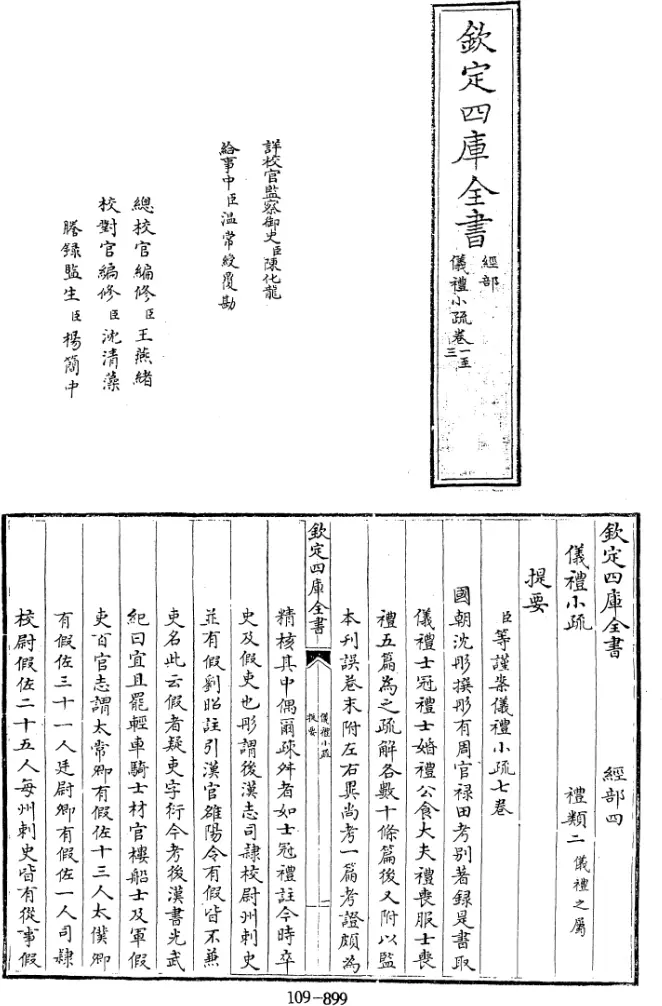 欽定四庫全書
經部
儀禮小疏卷一至三
詳校官監察御史臣陳化龍
給事中臣温常綬覆勘
總校官編修臣王燕緒
校對官編修臣沈清藻
謄錄監生臣楊簡中
欽定四庫全書 經部四
儀禮小疏 禮類二 儀禮之屬
提要
臣等謹案儀禮小疏七卷
國朝沈彤撰彤有周官禄田考别著録是書取
儀禮士冠禮士婚禮公食大夫禮喪服士喪
禮五篇為之疏解各數十條篇後又附以監
本刊誤卷末附左右異尚考一篇考證頗為
欽定四庫全書
儀禮小疏
提要
一
精核其中偶爾疎舛者如士冠禮註今時卒
史及假吏也彤謂後漢志司隷校尉州刺史
並有假劉昭註引漢官雒陽令有假皆不兼
吏名此云假者疑吏字衍今考後漢書光武
紀曰宜且罷輕車騎士材官樓船士及軍假
吏百官志謂太常卿有假佐十三人太僕卿
有假佐三十一人廷尉卿有假佐一人司隷
校尉假佐二十五人每州刺史皆有從事假
109-899